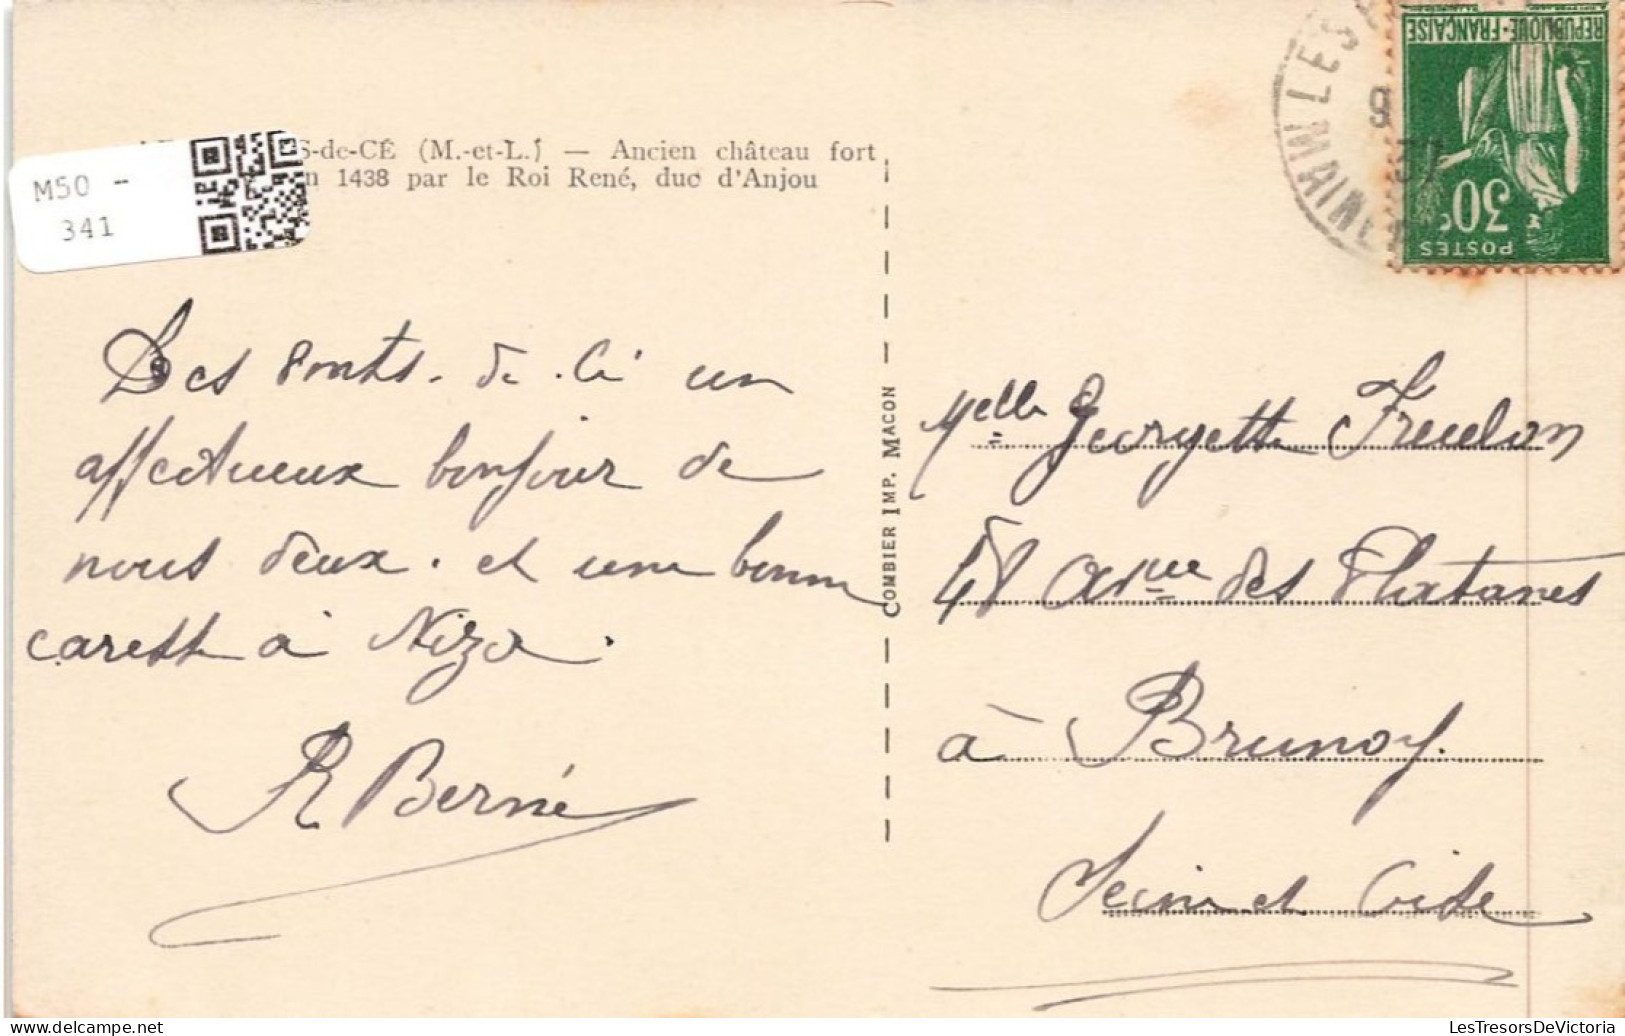 M50 -
341
S-de-CÉ (M.-et-L.) — Ancien château fort
n 1438 par le Roi René, duc d'Anjou
Les Ponts. de. Cé un
affectueux bonjour de
nous deux. et une bonne
caresse à Niza.
R Berné
COMBIER IMP. MACON
LES
MAINE
9
37
REPUBLIQUE-FRANÇAISE
30c
POSTES
Melle Georgette Freulon
48 avnue des Platanes
à Brunoy.
Seine et Oise
LesTresorsDeVictoria
www.delcampe.net